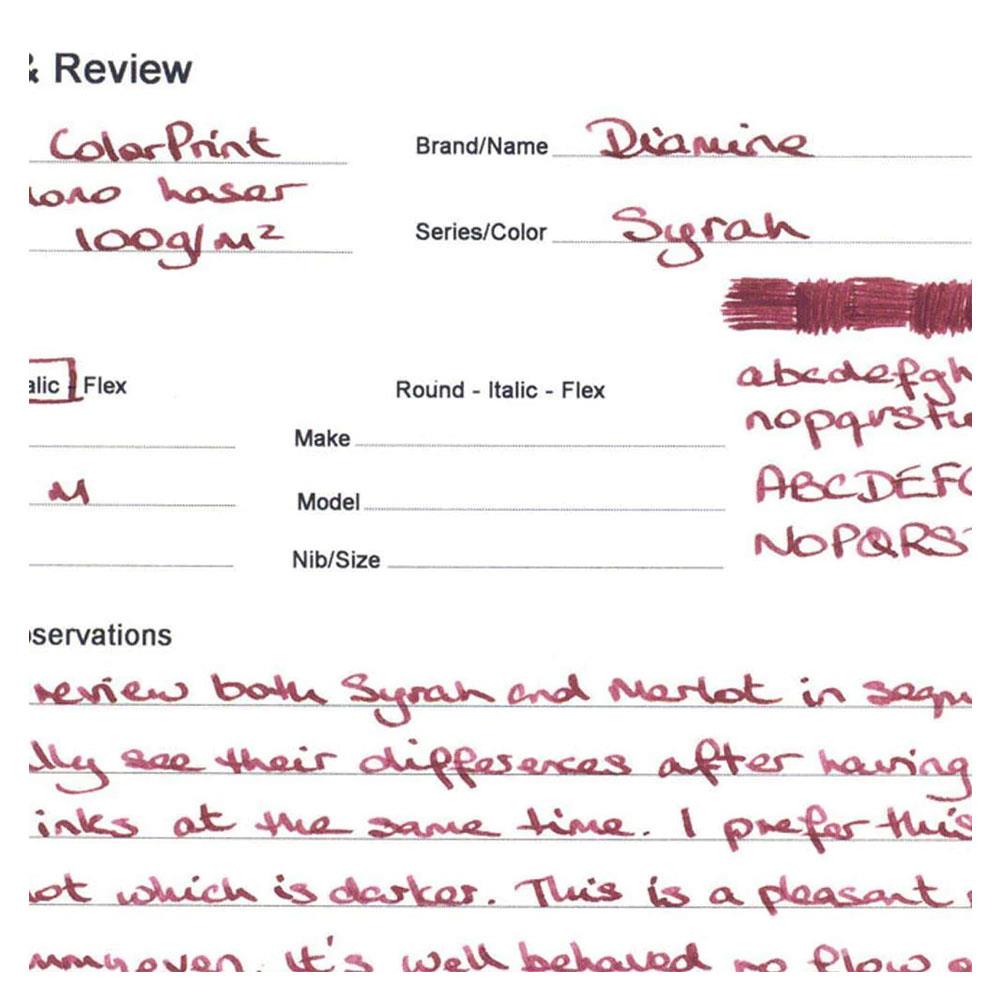 & Review
ColorPrint
Brand/Name Diamine
mono Laser
100g/m²
Series/Color Syrah
Italic - Flex
Round - Italic - Flex
abcdefgh
nopqrstu
Make
M
Model
ABCDEF
NOPQRS
Nib/Size
servations
review both Syrah and Merlot in
see their differences after having
inks at the same time. I prefer this
which is darker. This is a pleasant
It's well behaved no flow